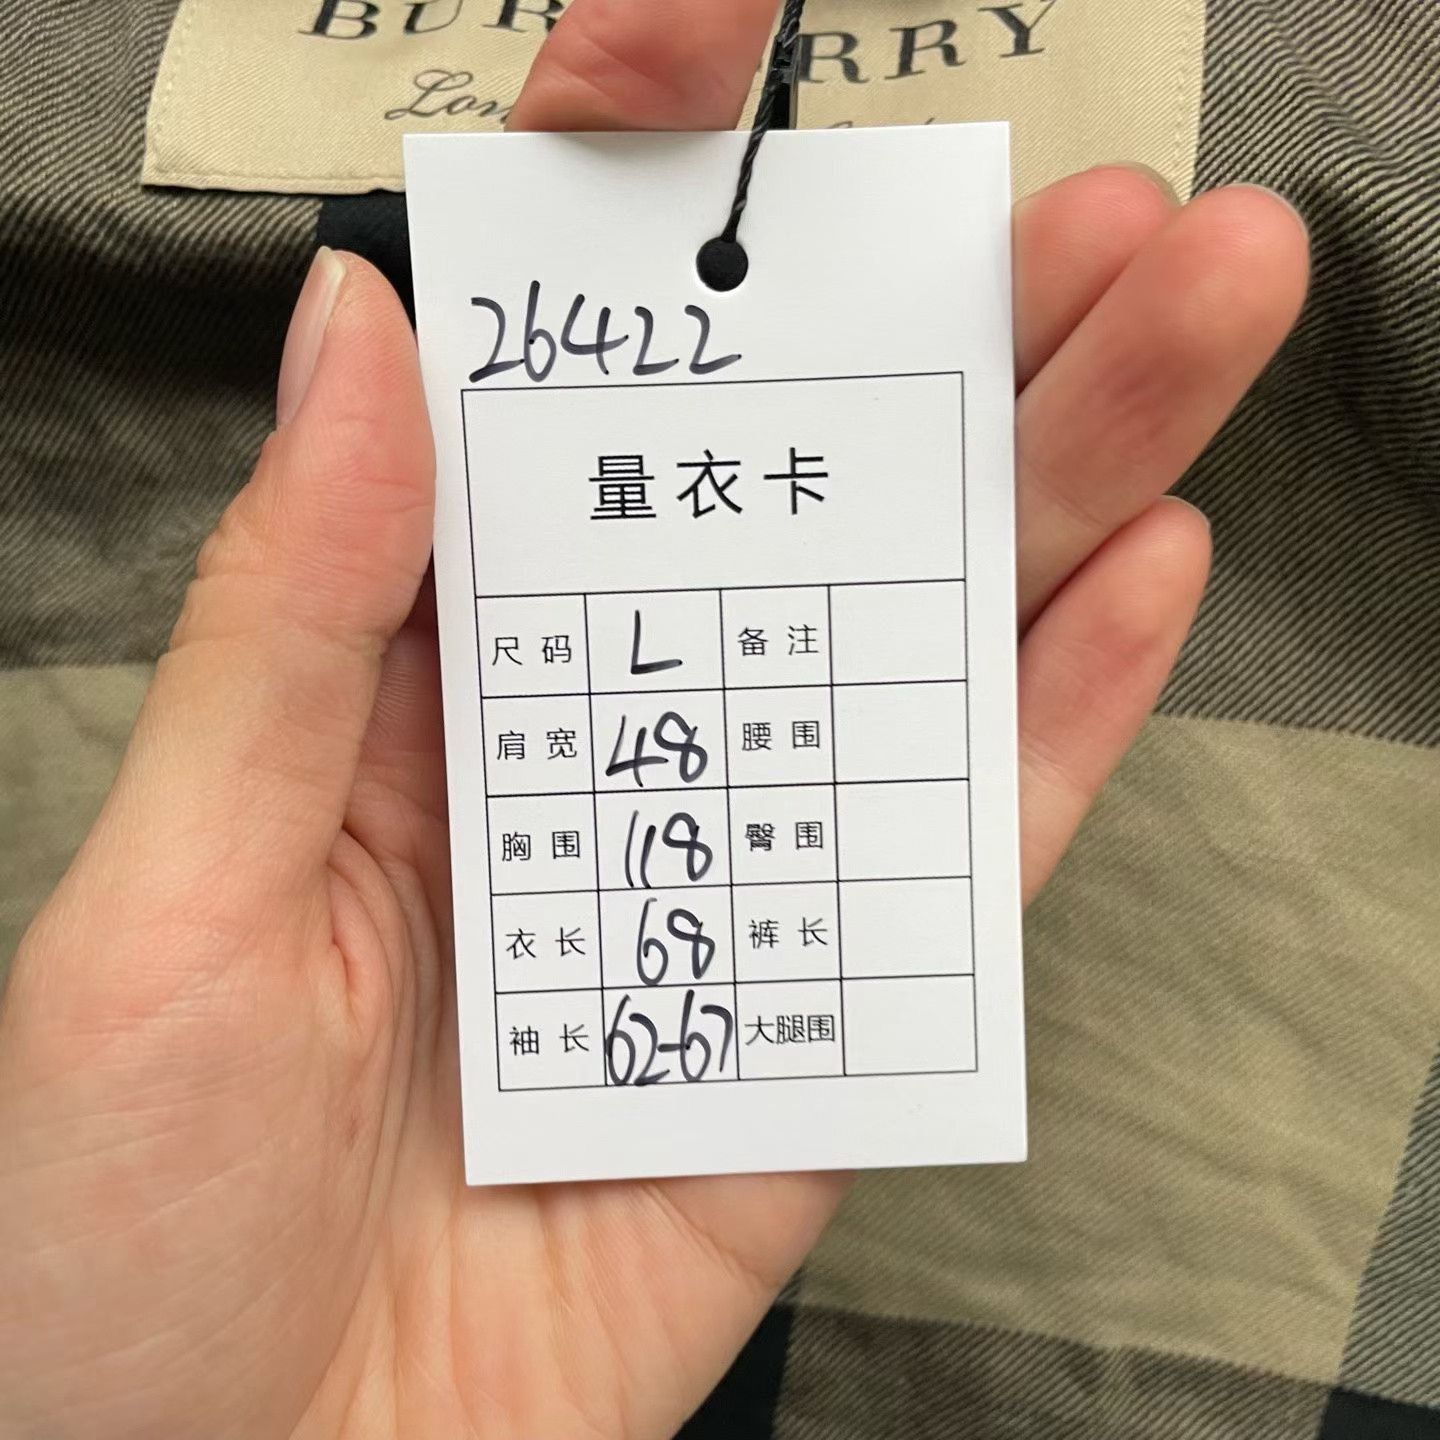 BUR RRY
Lon
26422
量衣卡
尺码 L 备注
肩宽 48 腰围
胸围 118 臀围
衣长 68 裤长
袖长 62-67 大腿围